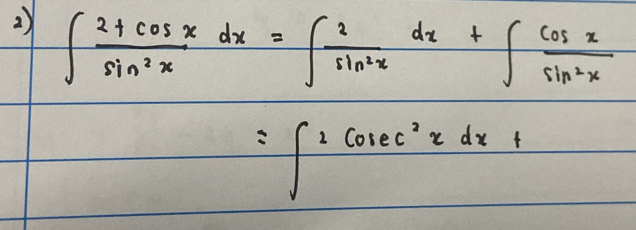 2) ∫ (2 + cos x)/(sin² x) dx = ∫ 2/(sin² x) dx + ∫ (cos x)/(sin² x)
= ∫ 2 cosec² x dx +